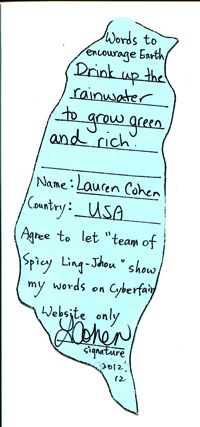 Words to
encourage Earth
Drink up the
rainwater
to grow green
and rich.
Name: Lauren Cohen
Country: USA
Agree to let "team of
Spicy Ling-Jhou" show
my words on Cyberfair
Website only
LCohen
signature
2012.
12